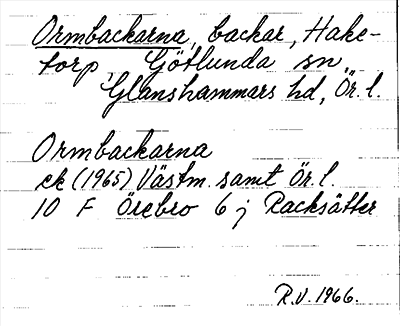 Ormbackarna, backar, Hake-
torp, Götlunda sn,
Glanshammars hd, Ör. l.
Ormbackarna
ek (1965) Västm. samt Ör. l.
10 F Örebro 6 j Racksätter
R.V. 1966.